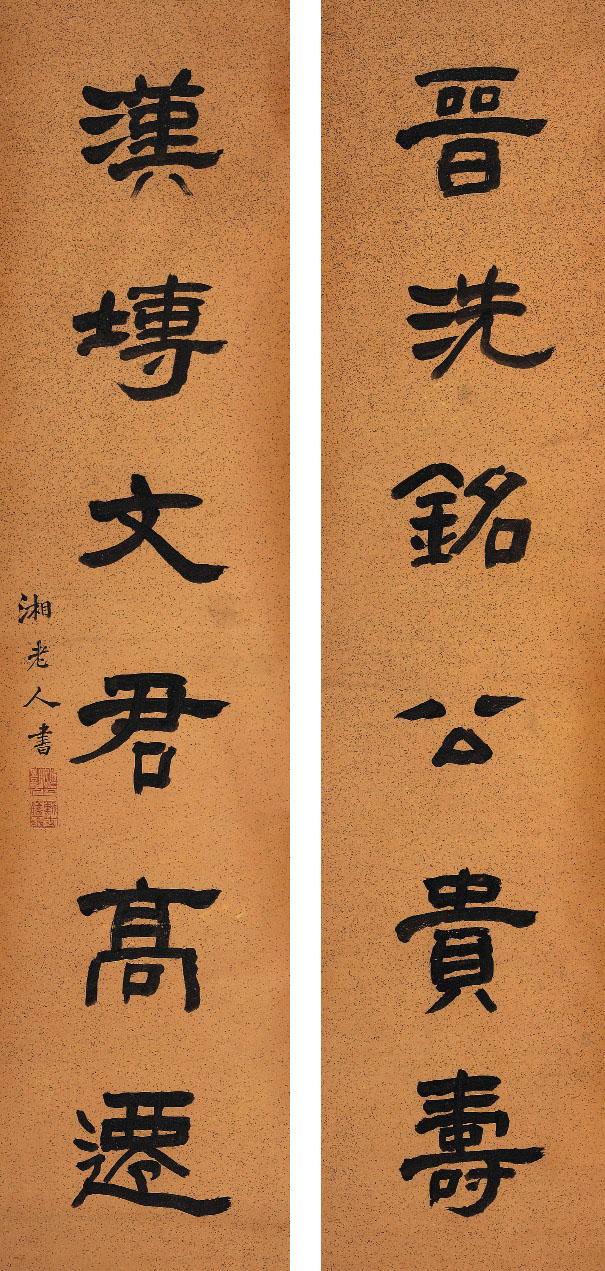 晉洗銘公貴壽
漢塼文君高遷
湘老人書